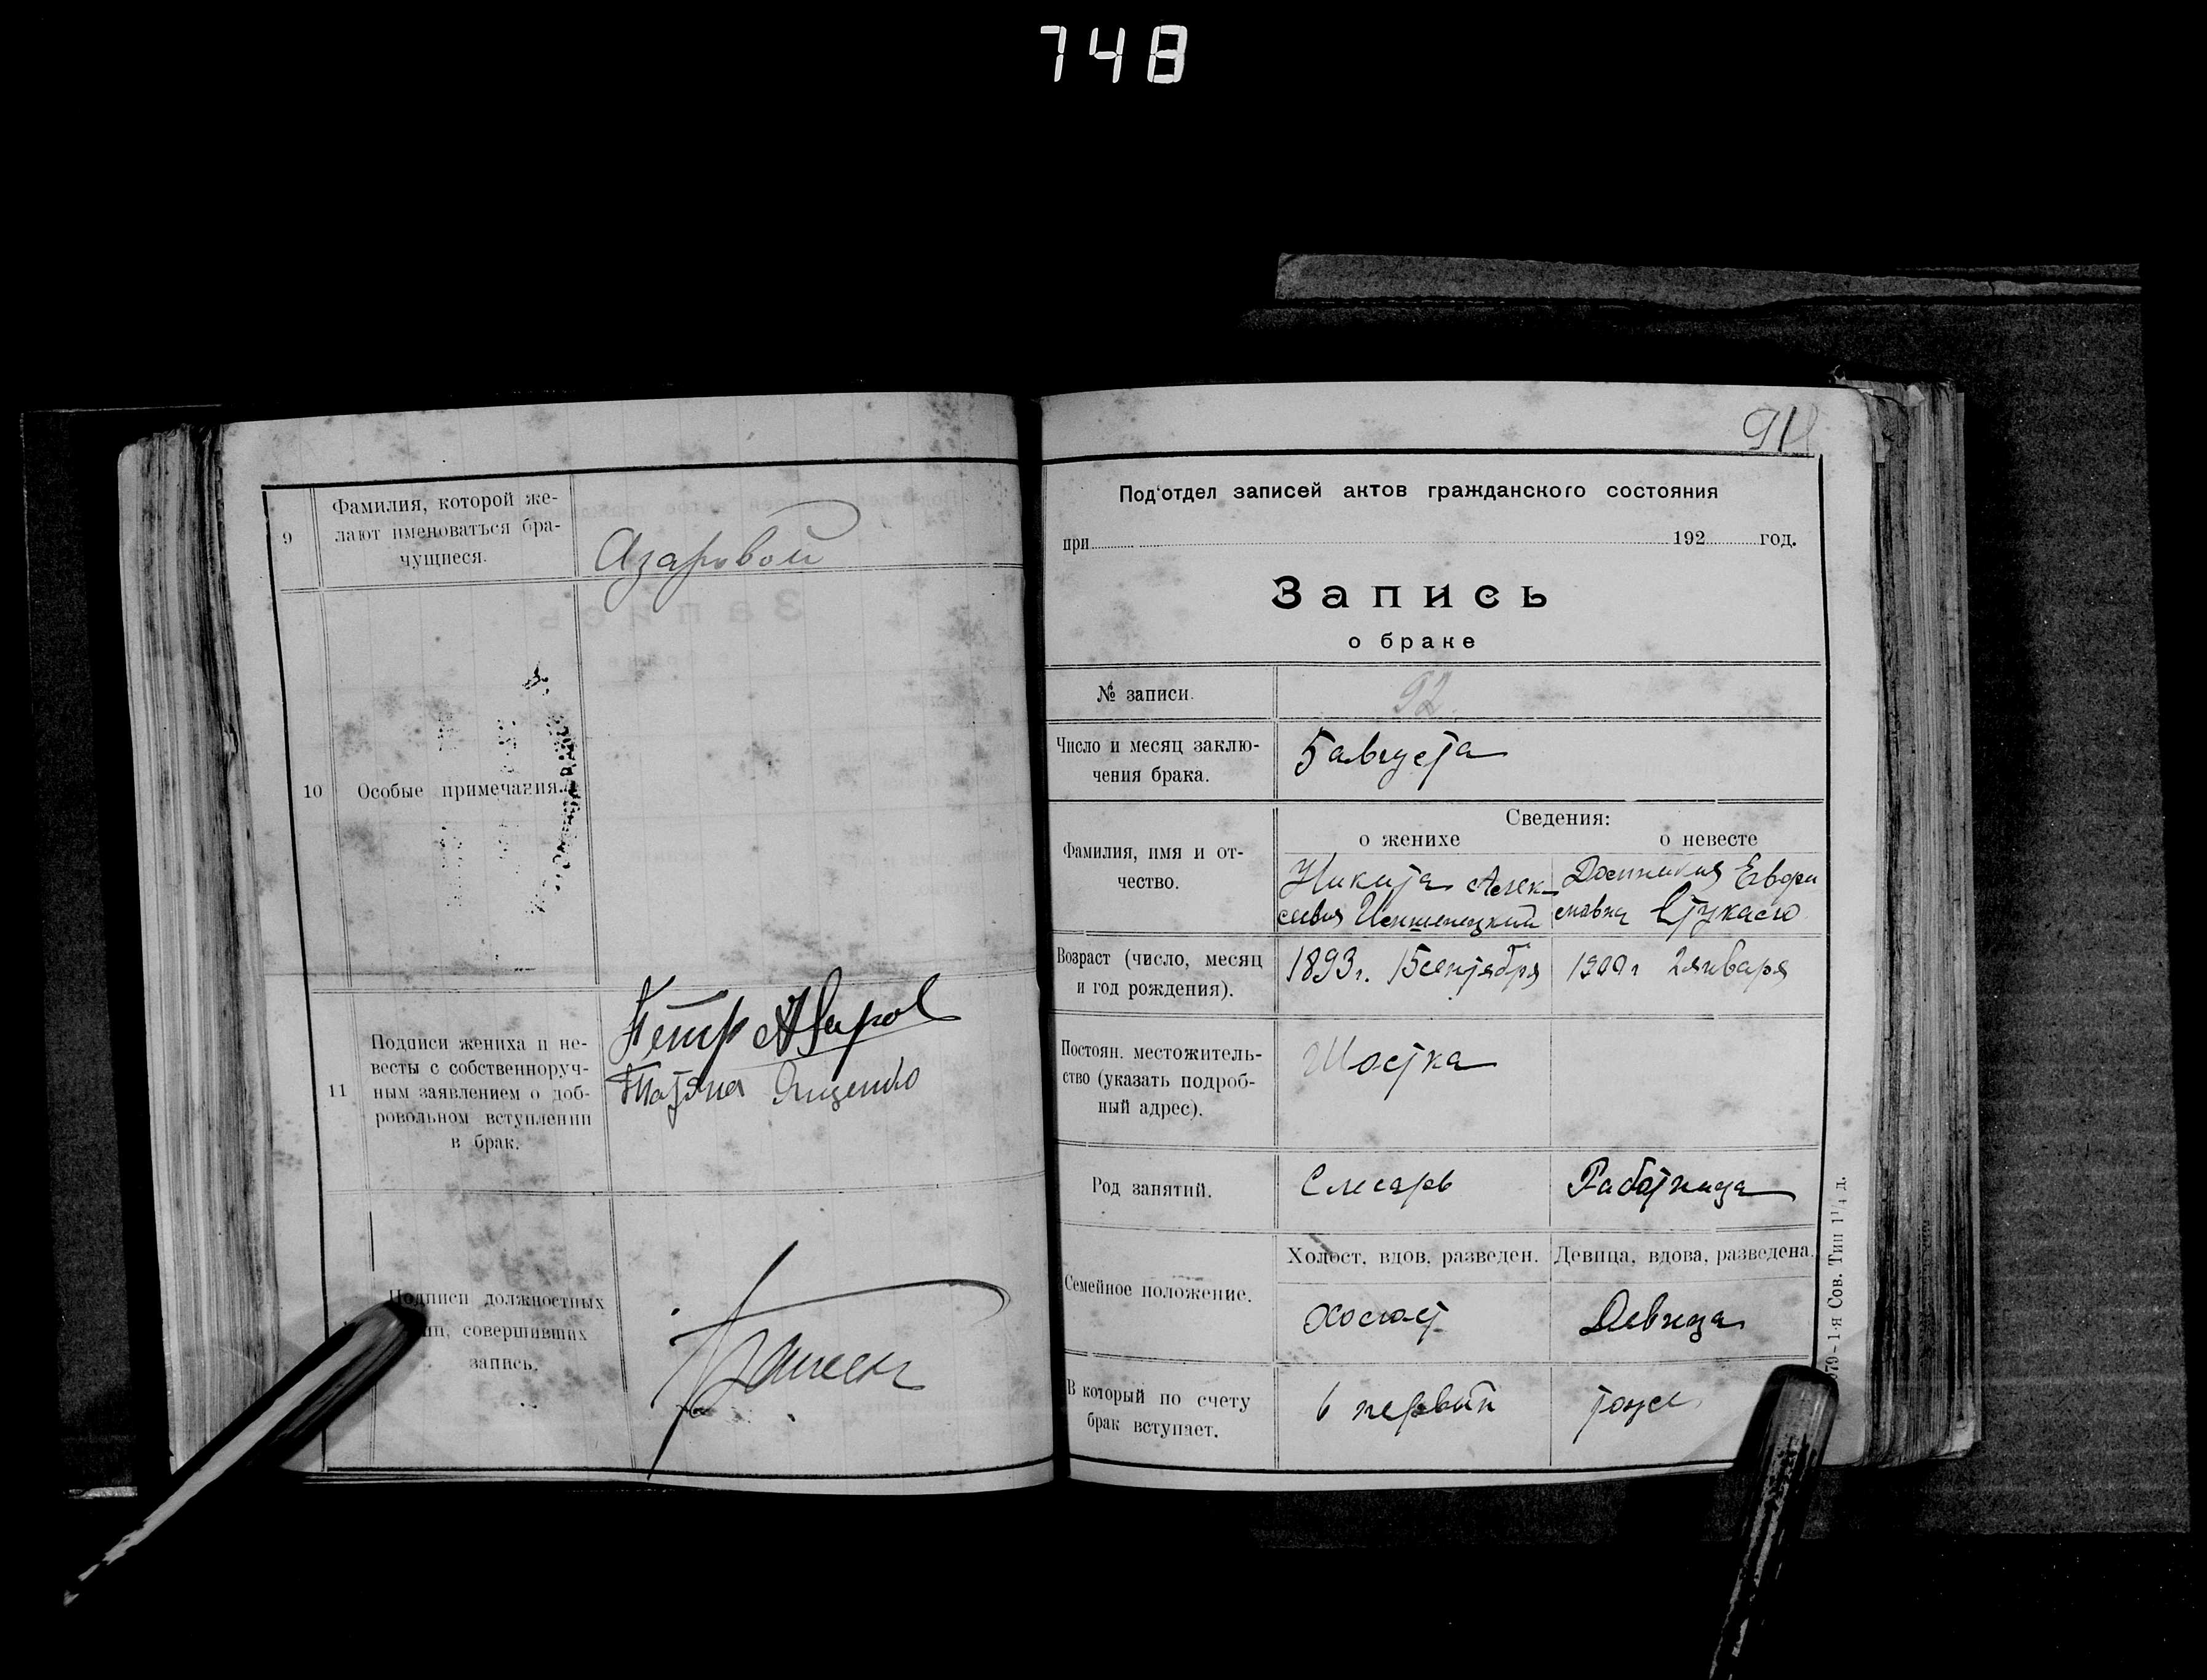 748
9
Фамилия, которой же-
лают именоваться бра-
чущиеся.
Азаровой
10
Особые примечания.
11
Подписи жениха и не-
весты с собственноруч-
ным заявлением о доб-
ровольном вступлении
в брак.
Петр Азаров
Татяна Яценко
Подписи должностных
лиц, совершивших
запись.
91
Под'отдел записей актов гражданского состояния
при 192 год.
Запись
о браке
№ записи.
92
Число и месяц заклю-
чения брака.
5 августа
Сведения:
о женихе
о невесте
Фамилия, имя и от-
чество.
Никита Алек-
сеевич
Возраст (число, месяц
и год рождения).
1893 г. 15 сентября
1900 г 2 января
Постоян. местожитель-
ство (указать подроб-
ный адрес).
Шостка
Род занятий.
Слесарь
Работница
Семейное положение.
Холост, вдов, разведен.
Девица, вдова, разведена.
Холост
Девица
В который по счету
брак вступает.
в первый
тоже
079 - 1-я Сов. Тип 1¹/₄ д.